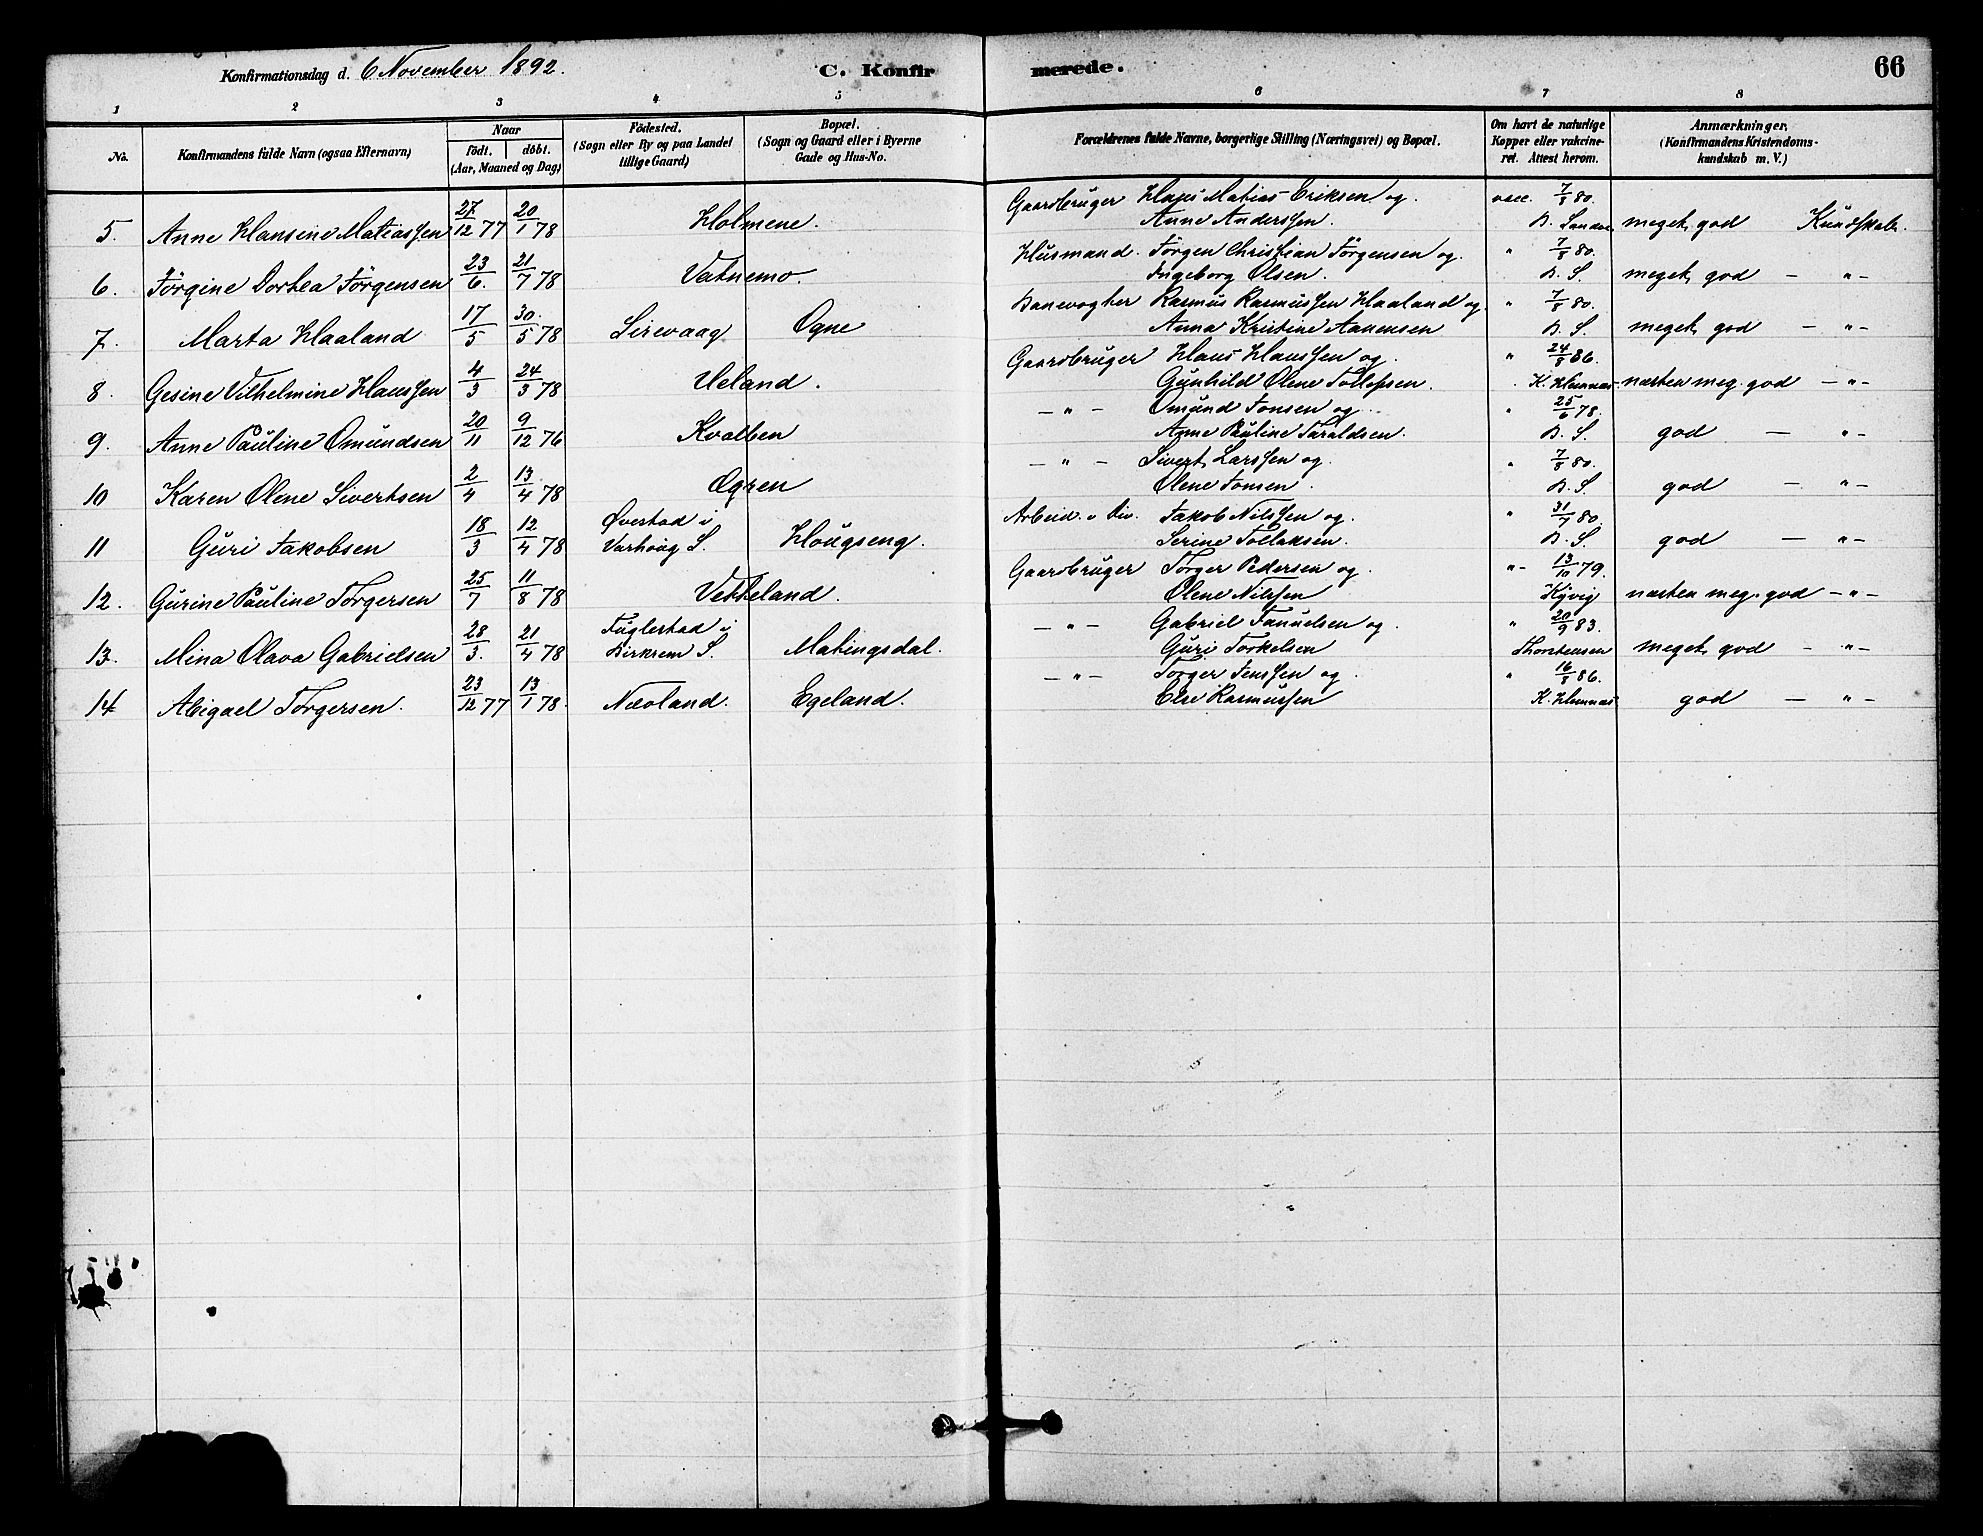 Konfirmationsdag d. 6 November 1892. C. Konfirmerede. 66
1 2 3 4 5 6 7 8
No. Konfirmandens fulde Navn (ogsaa Efternavn) Naar födt. döbt. (Aar, Maaned og Dag) Födested. (Sogn eller By og paa Landet tillige Gaard) Bopæl. (Sogn og Gaard eller i Byerne Gade og Hus-No. Forældrenes fulde Navne, borgerlige Stilling (Næringsvei) og Bopæl. Om havt de naturlige Kopper eller vakcineret. Attest herom. Anmærkninger. (Konfirmandens Kristendomskundskab m. V.)
Gaardbruger Hans Matias Eriksen og vacc. 7/8 80.
5. Anne Hansine Matiassen 27/12 77 20/1 78 Holmene. Anne Anderssen. meget god Kundskab.
Husmand Jörgen Christian Jörgensen og " 7/8 80.
6. Jörgine Dorthea Jörgensen 23/6. 21/7 78 Vatnemo. Ingeborg Olsen. B. S. meget god — " —
Banevogter Rasmus Rasmussen Haaland og " 7/8 80.
7. Marta Haaland 17/5 30/5 78 Sirevaag Ogne Anna Kristine Aanensen B. S. meget god — " —
Gaardbruger Hans Hanssen og " 24/8 86.
8. Gesine Vilhelmine Hanssen 4/3 24/3 78 Ueland. Gunhild Olene Tollefsen. næsten meg. god — " —
— " — Omund Jonsen og " 25/6 78.
9. Anne Pauline Omundsen 20/11 9/12 76 Kvalben Anne Pauline Taraldsen. B. S. god — " —
— " — Sivert Larssen og " 7/8 80.
10 Karen Olene Sivertsen 2/4 13/4 78 Ogren Olene Jonsen. B. S. god — " —
Arbeid. v Div. Jakob Nilssen og " 31/7 80.
11 Guri Jakobsen 18/3 12/4 78 Øvestad i Varhoug S. Hougseng. Serine Tollaksen. B. S. god — " —
Gaardbruger Torger Pedersen og " 13/10 79.
12. Gurine Pauline Torgersen 25/7 11/8 78 Vetteland. Olene Nilssen Kyvig næsten meg. god — " —
— " — Gabriel Tanuelsen og " 20/9 83.
13. Mina Olava Gabrielsen 28/3. 21/4 78 Fuglestad i Birkrem S. Matingsdal. Guri Torkelsen Thorstensen meget god — " —
— " — Torger Jenssen og " 16/8 86.
14 Abigael Torgersen. 23/12 77 13/1 78. Nævland. Egeland. Else Rasmussen god — " —